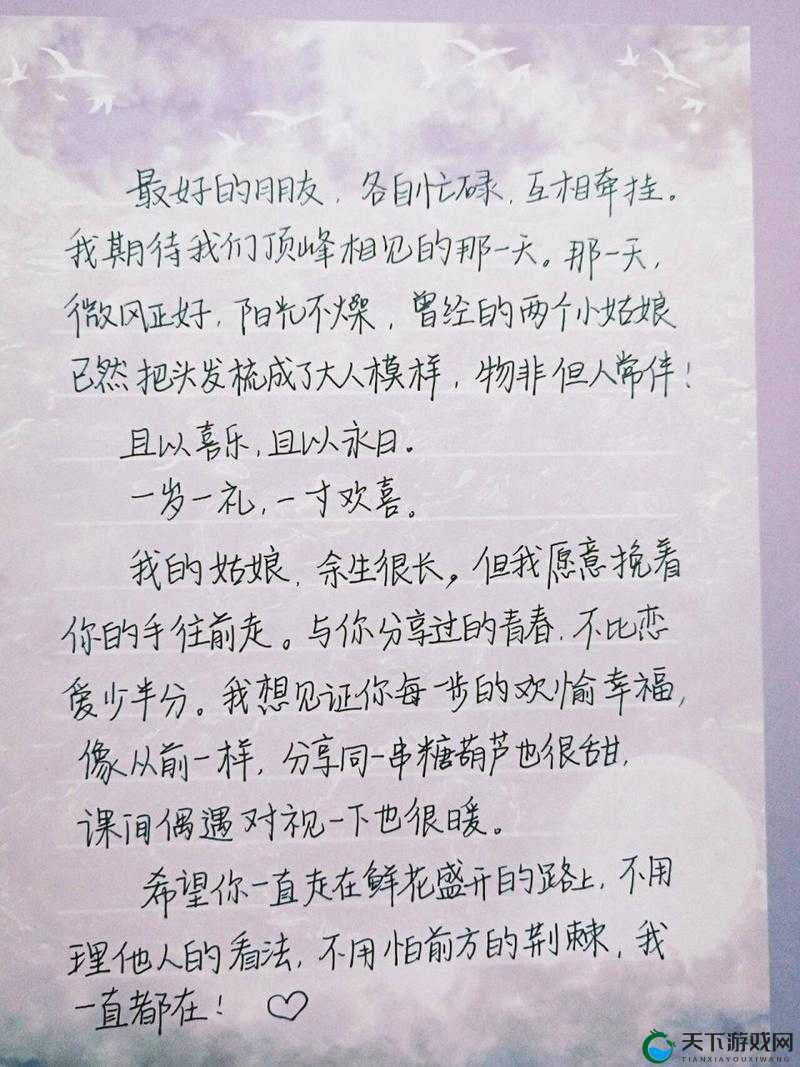 最好的朋友，各自忙碌，互相牵挂。
我期待我们顶峰相见的那一天。那一天，
微风正好，阳光不燥，曾经的两个小姑娘
已然把头发梳成了大人模样，物非但人常伴！
且以喜乐，且以永日。
一岁一礼，一寸欢喜。
我的姑娘，余生很长，但我愿意挽着
你的手往前走。与你分享过的青春，不比恋
爱少半分。我想见证你每一步的欢愉幸福，
像从前一样，分享同一串糖葫芦也很甜，
课间偶遇对视一下也很暖。
希望你一直走在鲜花盛开的路上，不用
理他人的看法，不用怕前方的荆棘，我
一直都在！
天下游戏网
TIANXIAYOUXIWANG